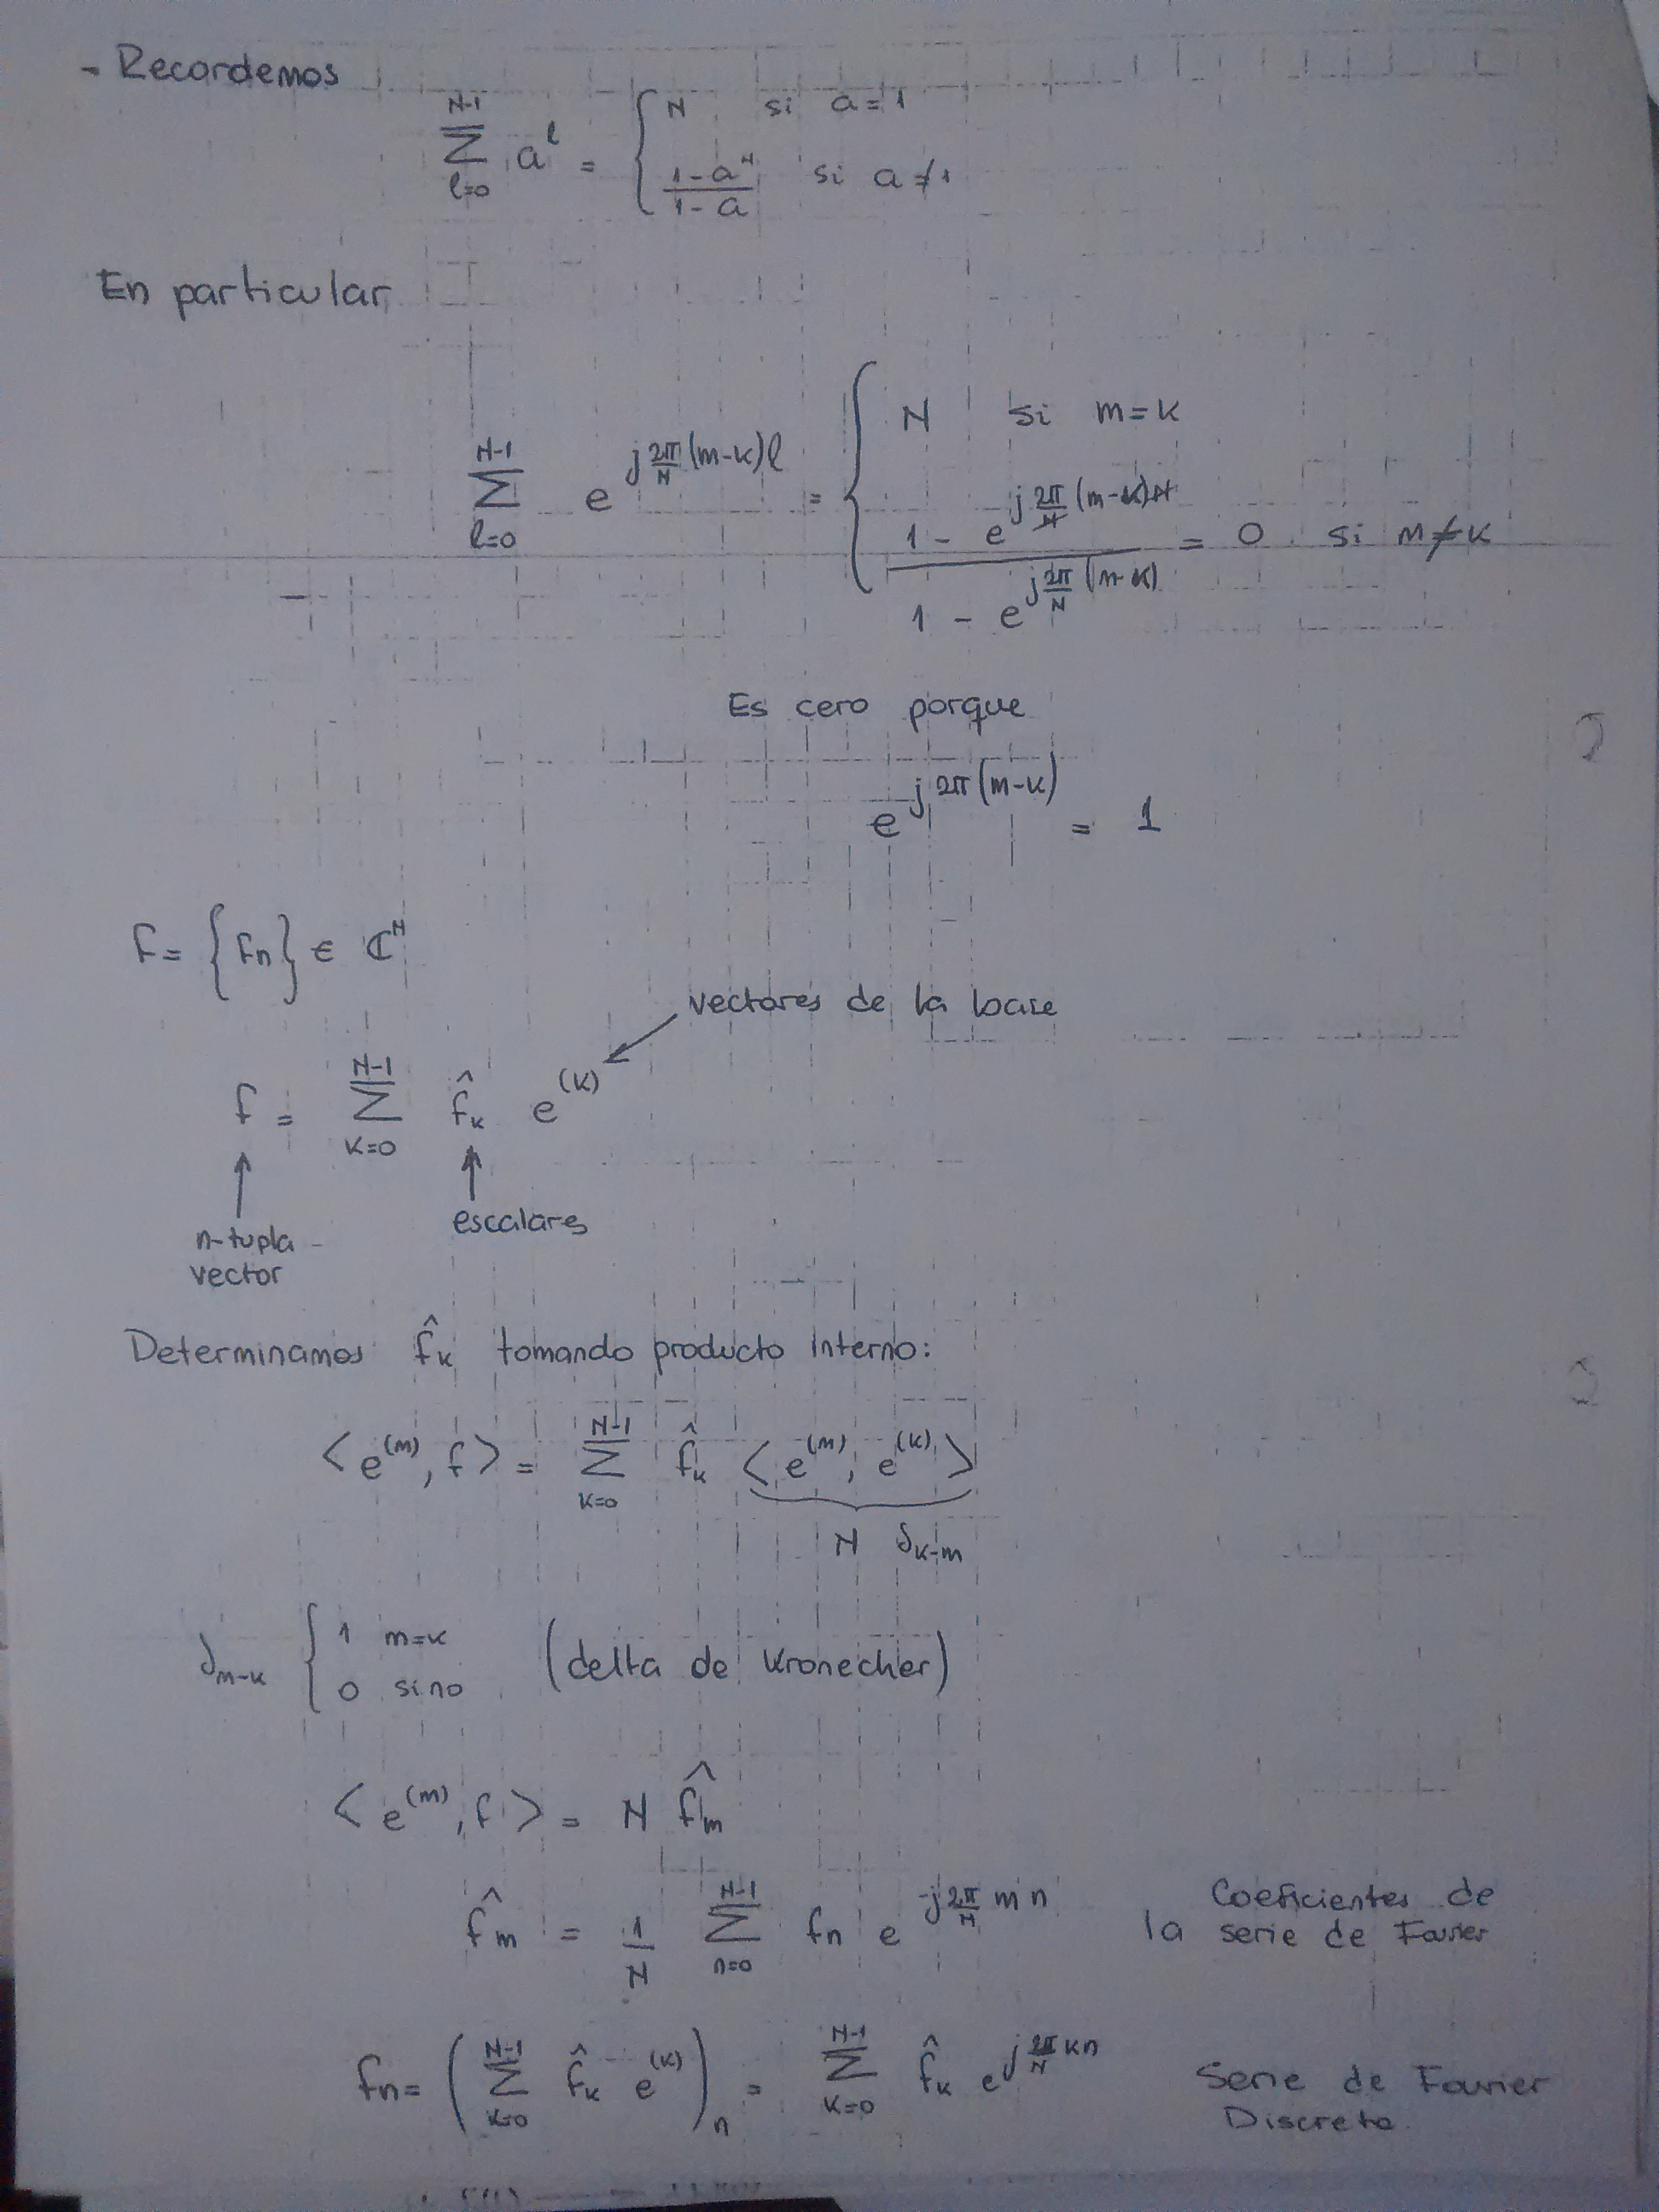 - Recordemos
\sum_{l=0}^{N-1} a^l = { N si a = 1
\frac{1-a^N}{1-a} si a ≠ 1
En particular
\sum_{l=0}^{N-1} e^{j\frac{2π}{N}(m-k)l} = { N si m = k
\frac{1 - e^{j\frac{2π}{N}(m-k)N}}{1 - e^{j\frac{2π}{N}(m-k)}} = 0 si m ≠ k
Es cero porque
e^{j2π(m-k)} = 1
f = {f_n} ∈ ℂ^N
vectores de la base
f = \sum_{k=0}^{N-1} \hat{f}_k e^{(k)}
n-tupla
vector
escalares
Determinamos \hat{f}_k tomando producto interno:
<e^{(m)}, f> = \sum_{k=0}^{N-1} \hat{f}_k <e^{(m)}, e^{(k)}>
N δ_{k-m}
δ_{m-k} { 1 m=k
0 sino
(delta de Kronecher)
<e^{(m)}, f> = N \hat{f}_m
\hat{f}_m = \frac{1}{N} \sum_{n=0}^{N-1} f_n e^{-j\frac{2π}{N}mn} Coeficientes de
la serie de Fourier
f_n = (\sum_{k=0}^{N-1} \hat{f}_k e^{(k)})_n = \sum_{k=0}^{N-1} \hat{f}_k e^{j\frac{2π}{N}kn} Serie de Fourier
Discreta.